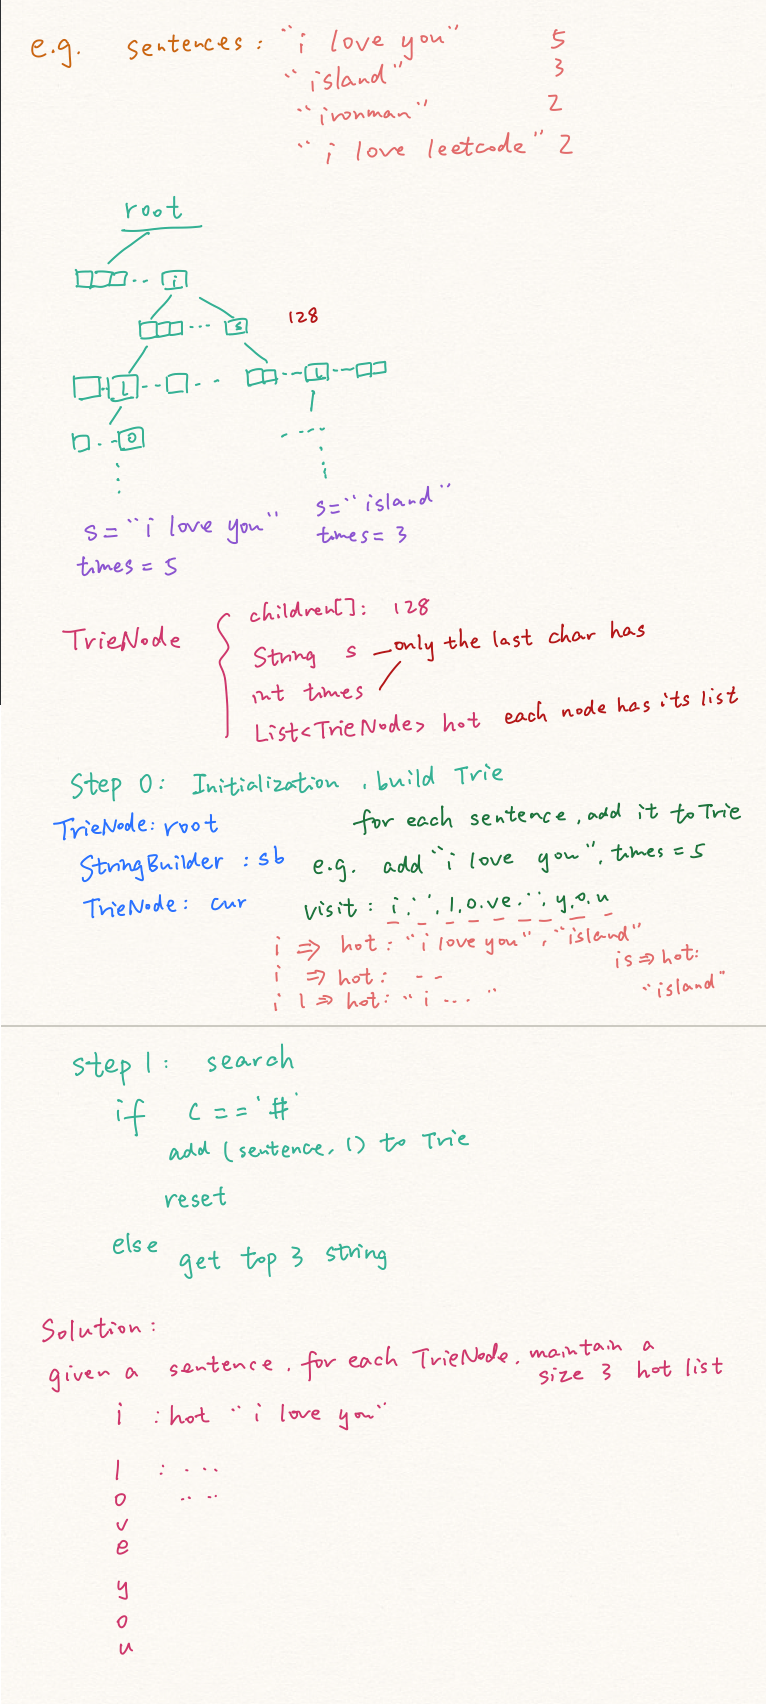 e.g. sentences : "i love you" 5
"island" 3
"ironman" 2
"i love leetcode" 2
root
i
s 128
l l
o
s="i love you" s="island"
times = 5 times = 3
TrieNode
children[]: 128
String s — only the last char has
int times
List<TrieNode> hot each node has its list
Step 0: Initialization, build Trie
TrieNode: root for each sentence, add it to Trie
StringBuilder : sb e.g. add "i love you", times = 5
TrieNode: cur visit : i,' ',l,o,v,e,' ',y,o,u
i => hot : "i love you", "island"
i => hot: --
i l => hot: "i ... "
is => hot:
"island"
step 1: search
if c == '#'
add (sentence, 1) to Trie
reset
else get top 3 string
Solution:
given a sentence, for each TrieNode, maintain a
size 3 hot list
i : hot "i love you"
l : ....
o ....
v
e
y
o
u